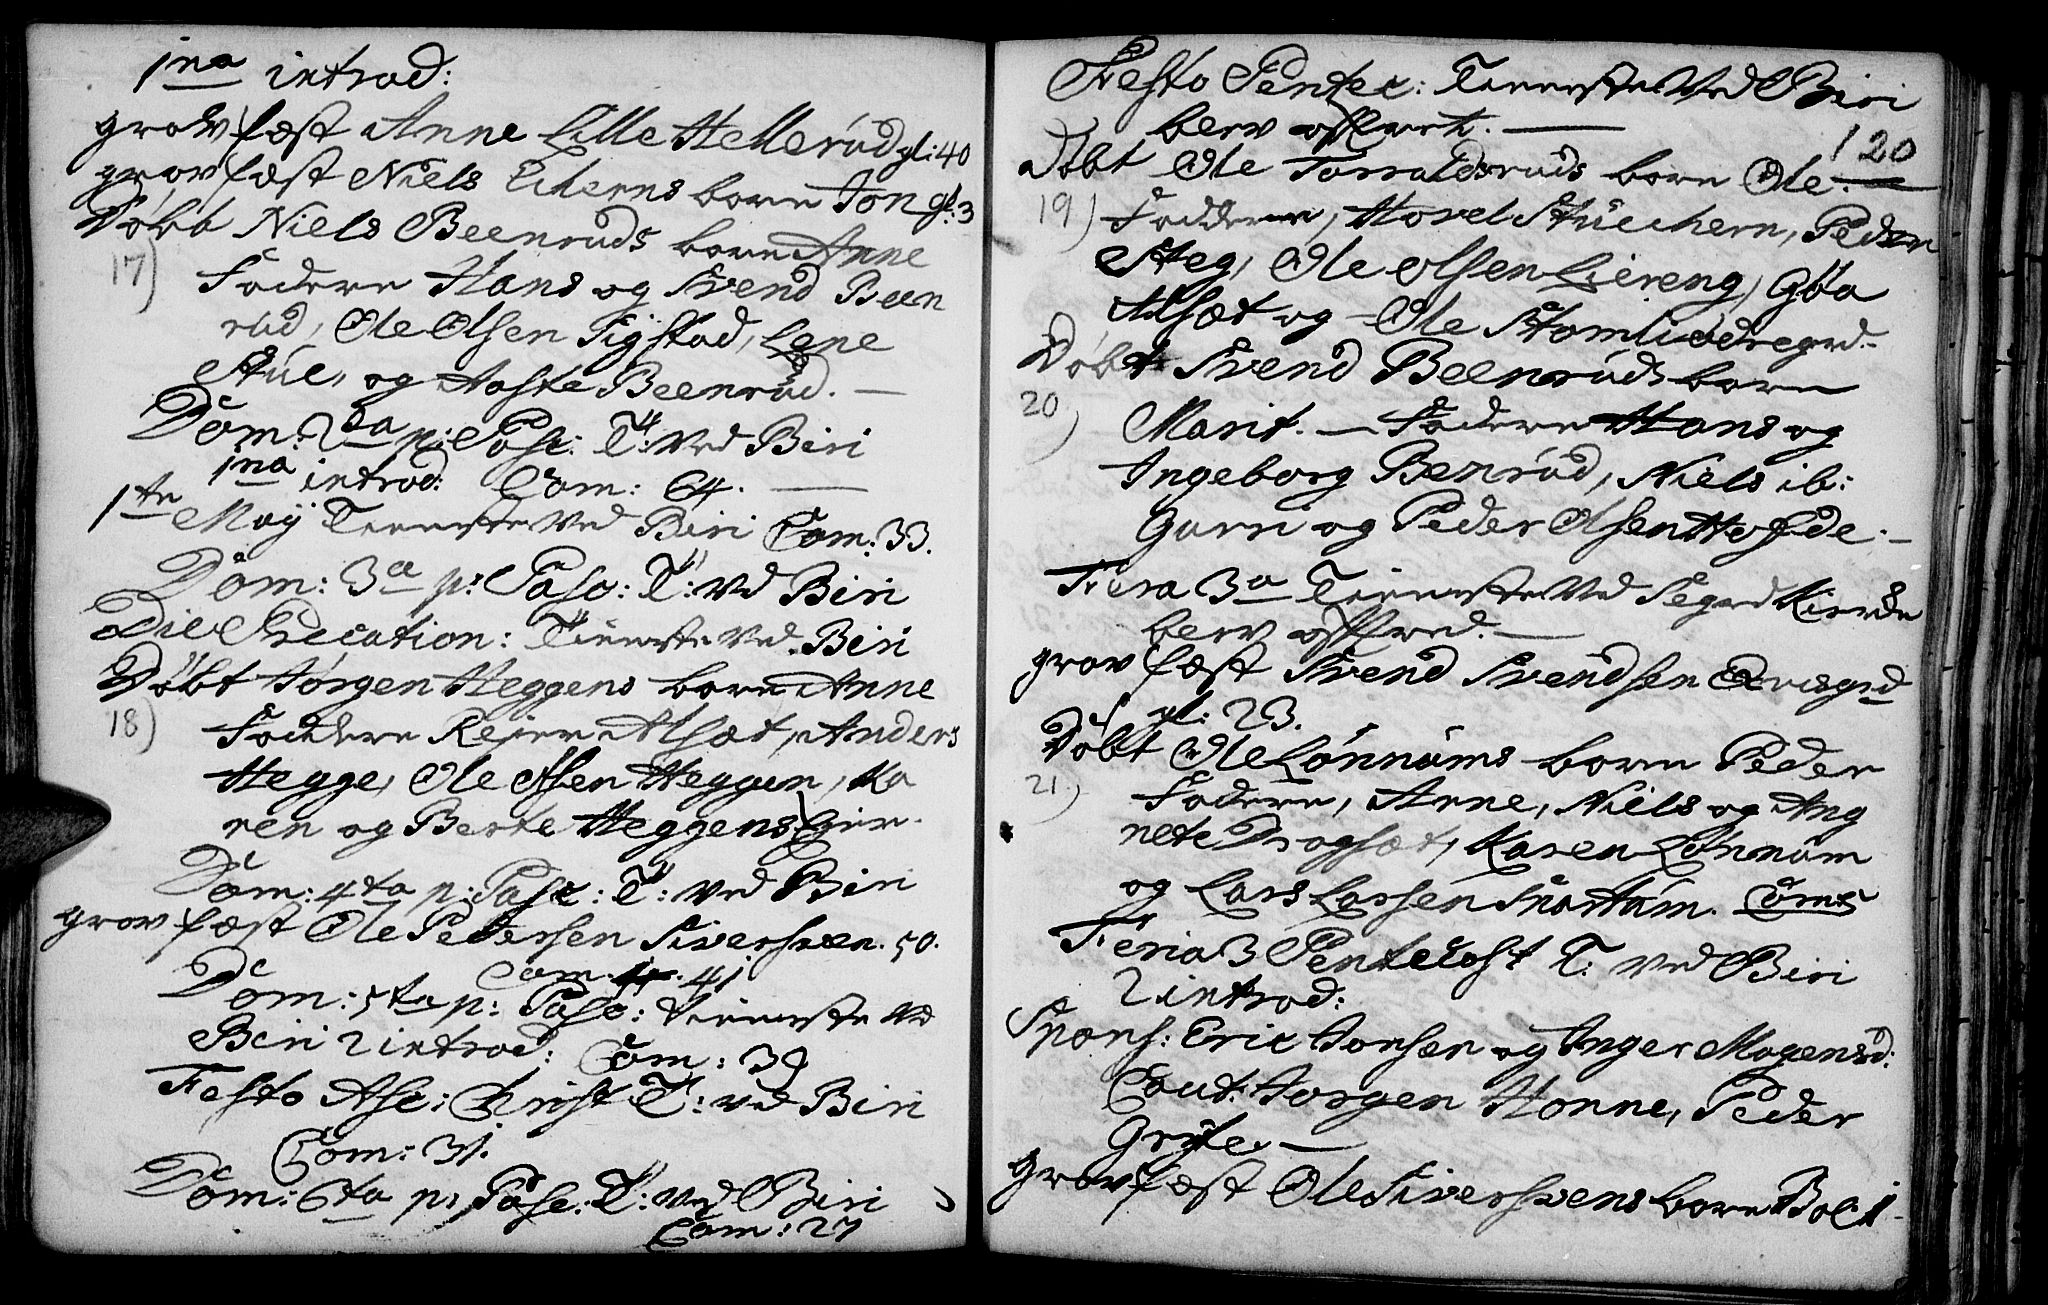 1na introd:
grov fæst Anne Lille Hellerud gl: 40
grov fæst Niels Eikerns barn Jon gl: 3
Døbt Niels Beenruds barn Anne
17) Faddere Hans og Svend Been
rud, Ole Olsen Sigstad, Lene
Stue, og Aaste Beenrud. —
Dom: 2da p: Pasc: T: ved Biri
1na introd: Com: 64. —
1te Maij Tieneste ved Biri Com: 33.
Dom: 3a p: Pasc: T: ved Biri
Die Precation: Tieneste ved Biri
Døbt Jørgen Heggens barn Anne
18) Faddere Rejer Alsæt, Anders
Hegge, Ole Olsen Heggen, Ka
ren og Berte Heggens Eier.
Dom: 4ta p: Pasc: T: ved Biri
grov fæst Ole Pedersen Siversveen. 50.
Com. 41
Dom: 5ta p: Pasc: Tieneste ved
Biri 2 introd: Com: 39
Festo Asc: Christ T: ved Biri
Com: 31.
Dom: 6ta p: Pasc: T: ved Biri
Com: 27
Festo Pentec: Tieneste ved Biri
blev offret. —
120
Døbt Ole Torraldsruds barn Ole. —
19) Faddere, Hovel Stuechern, Peder
Steg, Ole Olsen Liereng, Gøa
Alsæt og Ole Stomliddregrd. —
Døbt Svend Beenruds barn
20) Marit. — Faddere Hans og
Ingeborg Benrud, Niels ib:
Gurri og Peder Olsen Hofde. —
Feria 3a Tieneste ved Segrd Kircke
blev offred. —
grov fæst Svend Svendsen
gl: 23.
Døbt Ole Lønnums barn Peder
21) Faddere, Anne, Niels og Ang
nete Dragsæt, Karen Lønnum
og Lars Larsen Snartum.
Feria 3 Pentecost T: ved Biri
2 introd:
Spons: Eric Jonsen og Inger Mogensd:
Caut: Jorgen Honne, Peder
Gryte. —
grov fæst Ole Siversveens barn